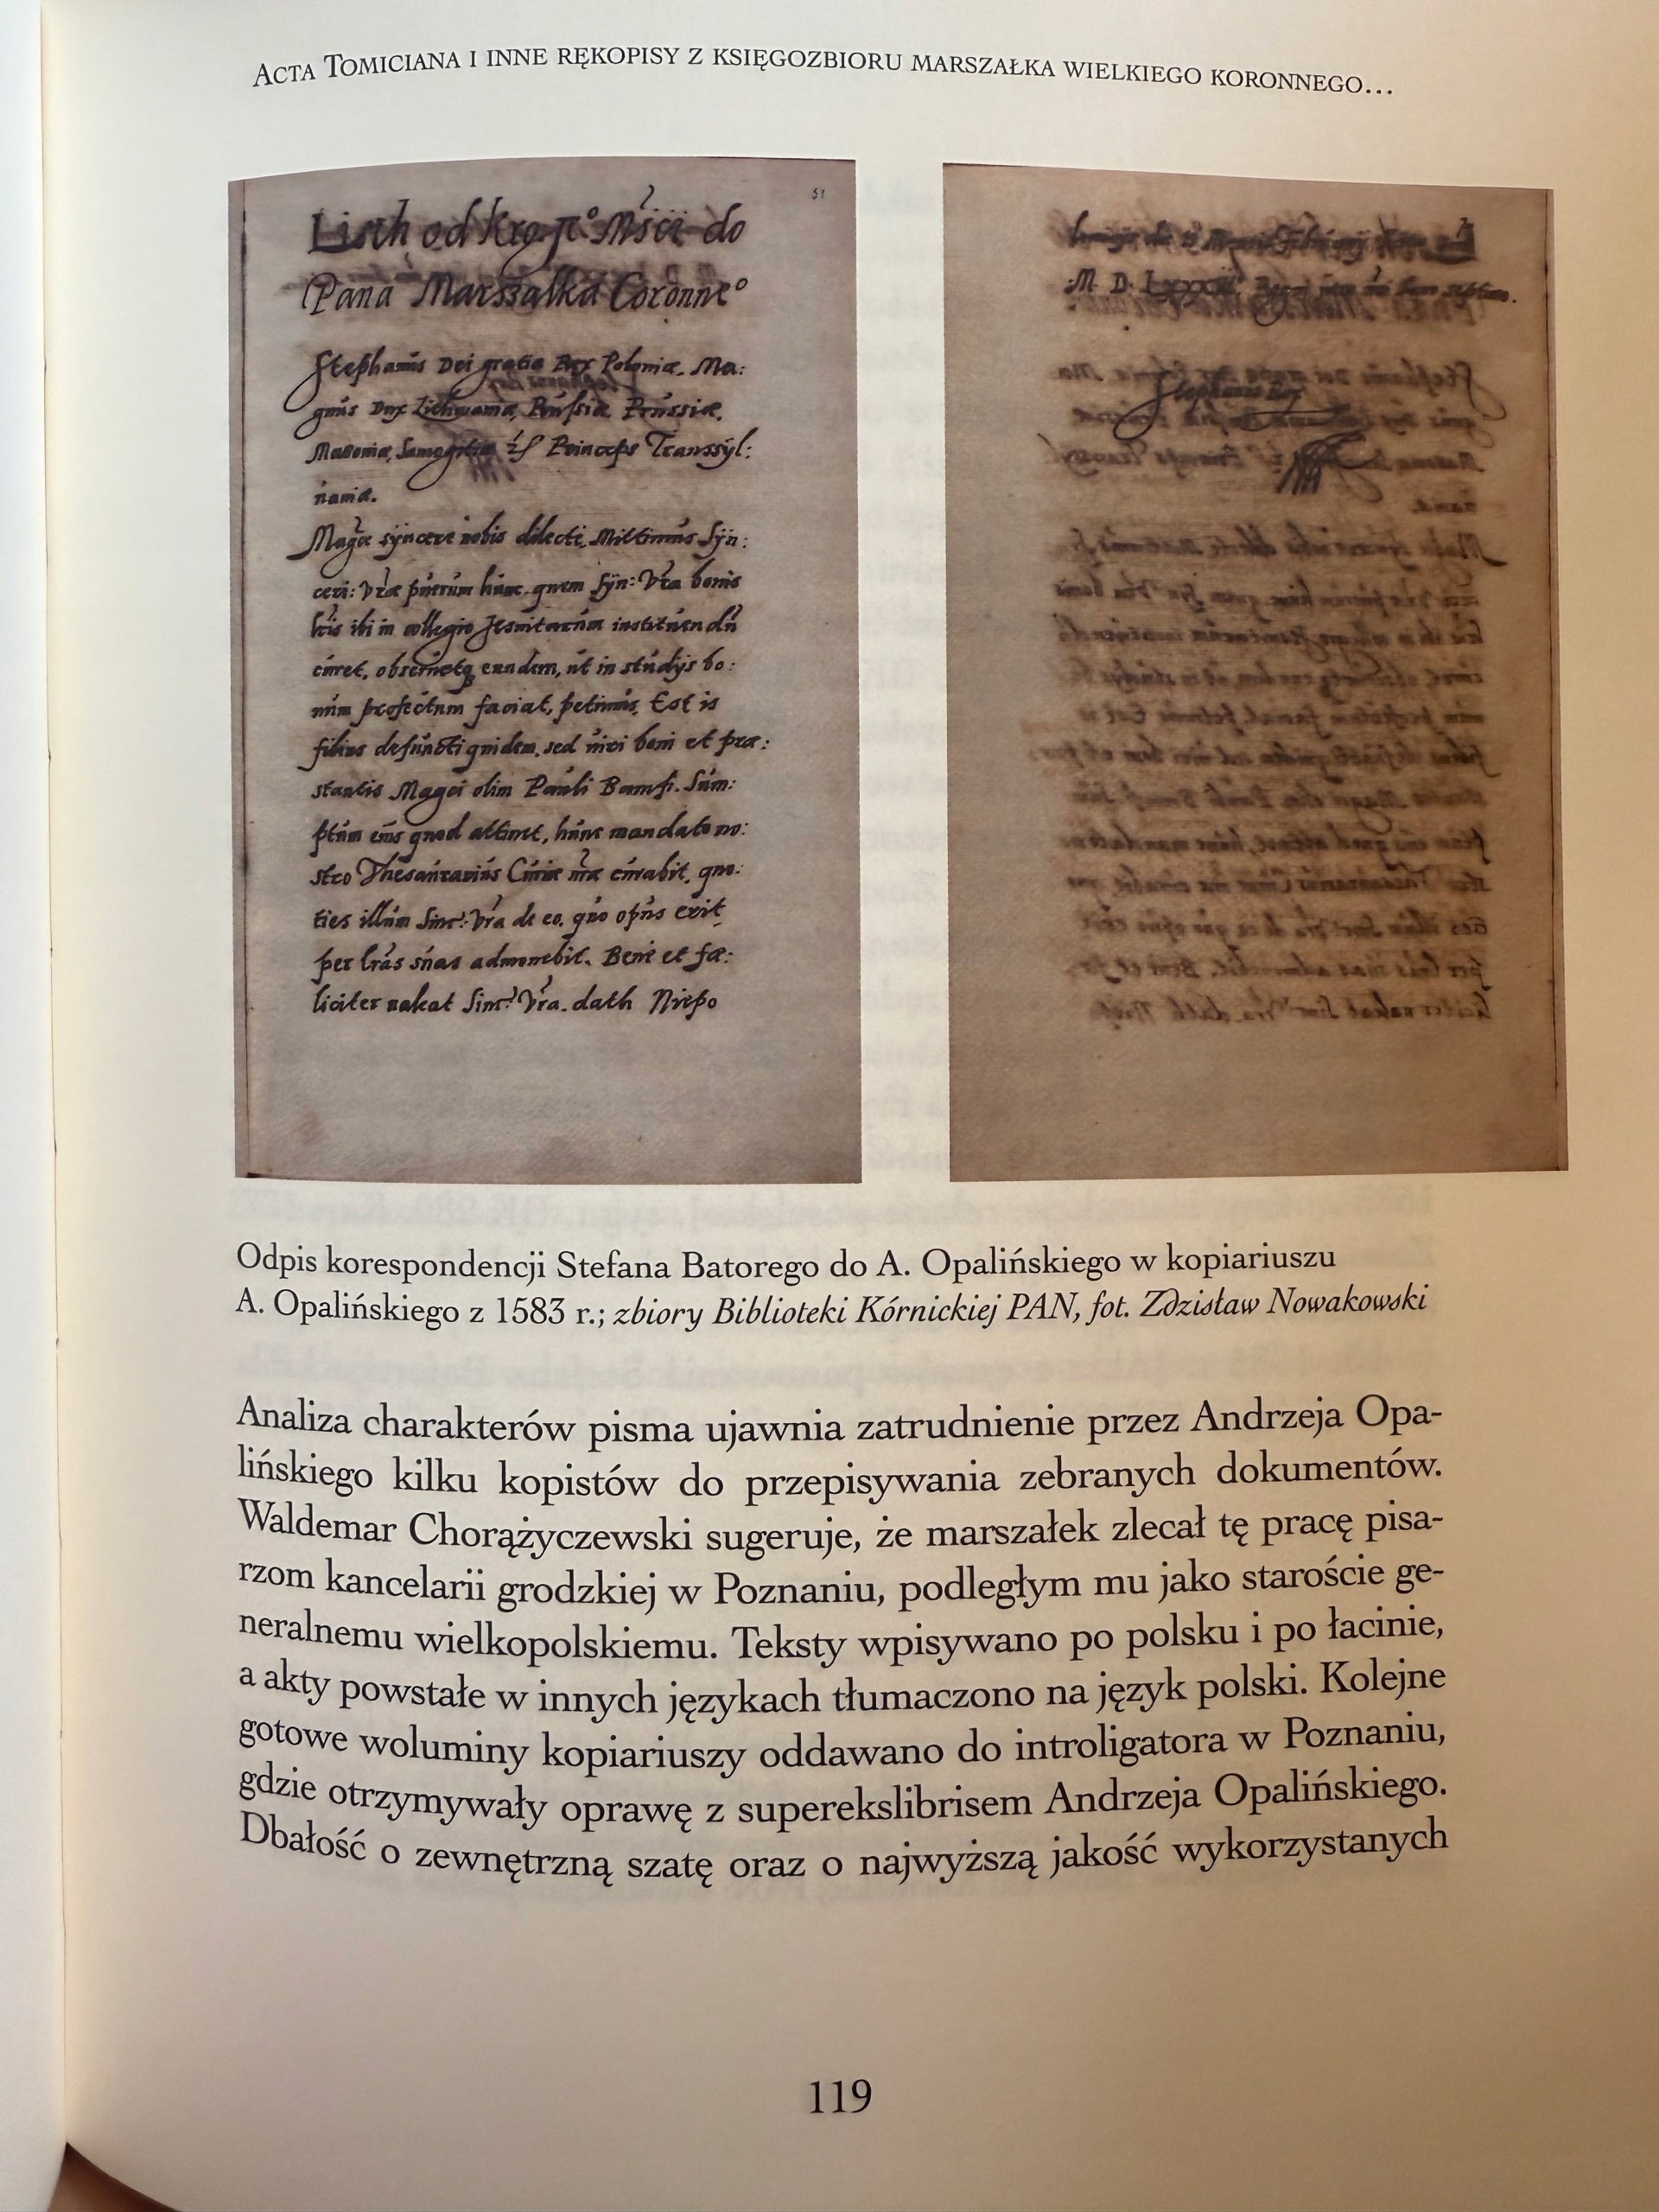 Acta Tomiciana i inne rękopisy z księgozbioru marszałka wielkiego koronnego…
51
Listh od Kro Je° Mści do
Pana Marszalka Coronne°
Stephanus Dei gratia Rex Poloniæ, Ma:
gnus Dux Lithwaniæ, Rußiæ Prussiæ,
Masoviæ, Samogitiæ Princeps Transsyl:
uaniæ.
Magce syncere nobis dilecte, Mittimus Syn:
ceri: Vrae puerum hunc, quem Syn: Vra bonis
ibi in collegio Jesuitarum instituendu
curet, obseruetq eundem, ut in studijs bo:
num profectum faciat, petimus, Est is
filius defuncti quidem, sed uiri boni et præ:
stantis Magci olim Pauli Bamfi. Sum:
ptum eius quod attinet, hunc mandato no:
stro Thesaurarius Curiæ nræ curabit, quo:
ties illum Sinc: Vra de eo, quo opus erit,
per lras suas admonebit. Bene et fæ:
liciter ualeat Sinc: Vra. dath Niepo
M. D. LXXXIII
Stephanus Rex
Odpis korespondencji Stefana Batorego do A. Opalińskiego w kopiariuszu
A. Opalińskiego z 1583 r.; zbiory Biblioteki Kórnickiej PAN, fot. Zdzisław Nowakowski
Analiza charakterów pisma ujawnia zatrudnienie przez Andrzeja Opa-
lińskiego kilku kopistów do przepisywania zebranych dokumentów.
Waldemar Chorążyczewski sugeruje, że marszałek zlecał tę pracę pisa-
rzom kancelarii grodzkiej w Poznaniu, podległym mu jako staroście ge-
neralnemu wielkopolskiemu. Teksty wpisywano po polsku i po łacinie,
a akty powstałe w innych językach tłumaczono na język polski. Kolejne
gotowe woluminy kopiariuszy oddawano do introligatora w Poznaniu,
gdzie otrzymywały oprawę z superekslibrisem Andrzeja Opalińskiego.
Dbałość o zewnętrzną szatę oraz o najwyższą jakość wykorzystanych
119